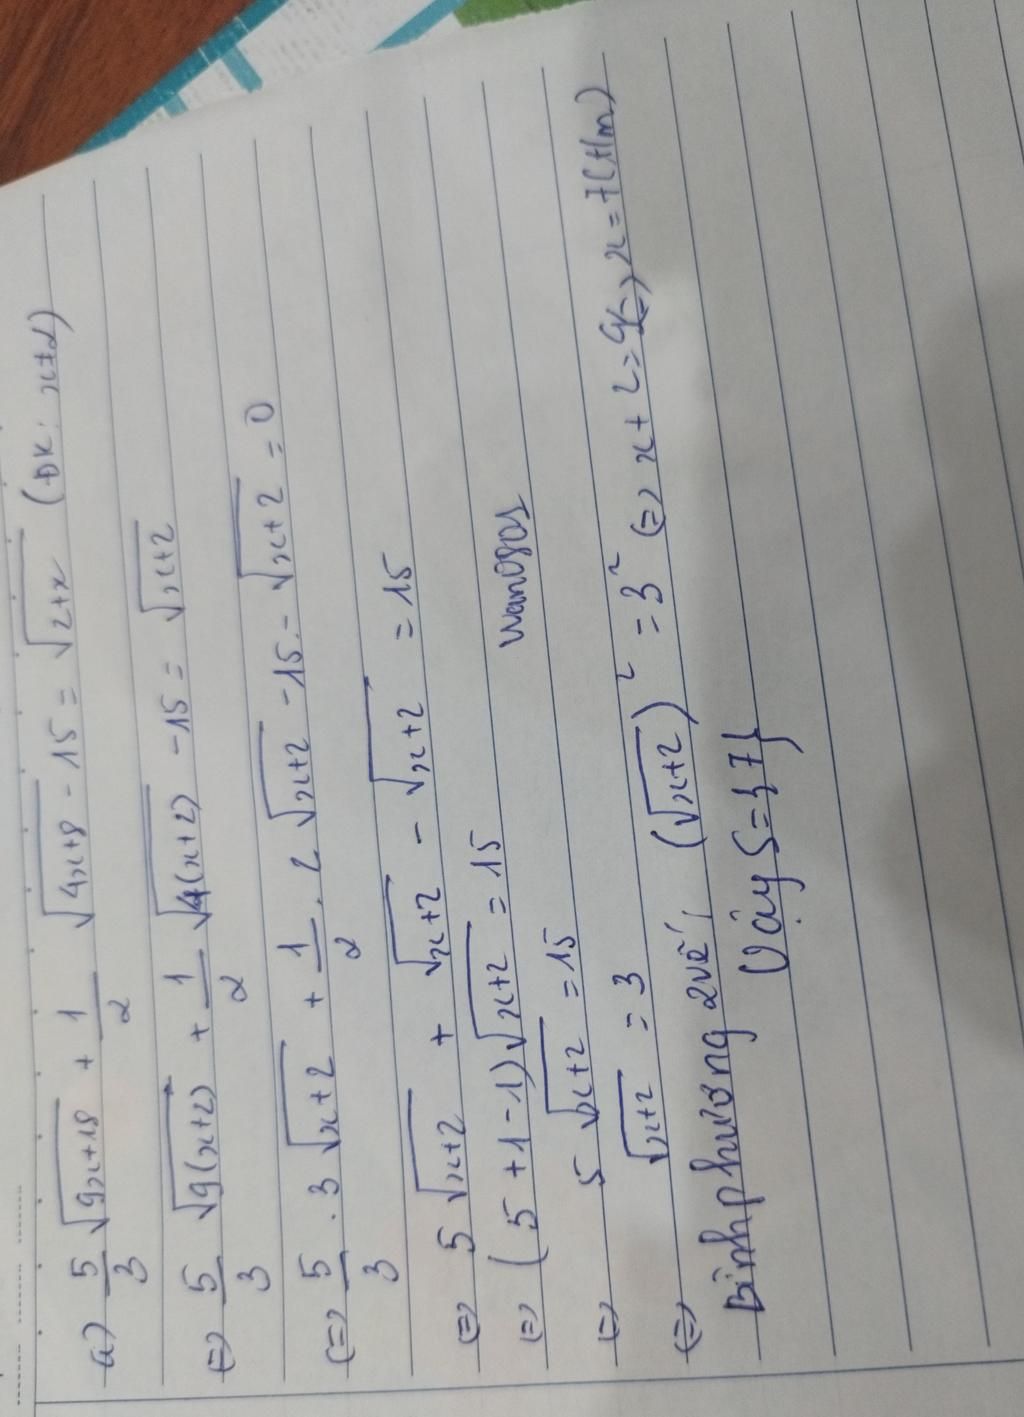 a) 5/3 √(9x+18) + 1/2 √(4x+8) - 15 = √(2+x) (ĐK: x≠2)
(=) 5/3 √(9(x+2)) + 1/2 √(4(x+2)) - 15 = √(x+2)
(=) 5/3 . 3 √(x+2) + 1/2 . 2 √(x+2) - 15 - √(x+2) = 0
(=) 5 √(x+2) + √(x+2) - √(x+2) = 15
(=) (5 + 1 - 1) √(x+2) = 15
(=) 5 √(x+2) = 15
(=) √(x+2) = 3
Bình phương 2 vế: (√(x+2))² = 3² (=) x + 2 = 9 (=) x = 7 (t/m)
Vậy S = {7}